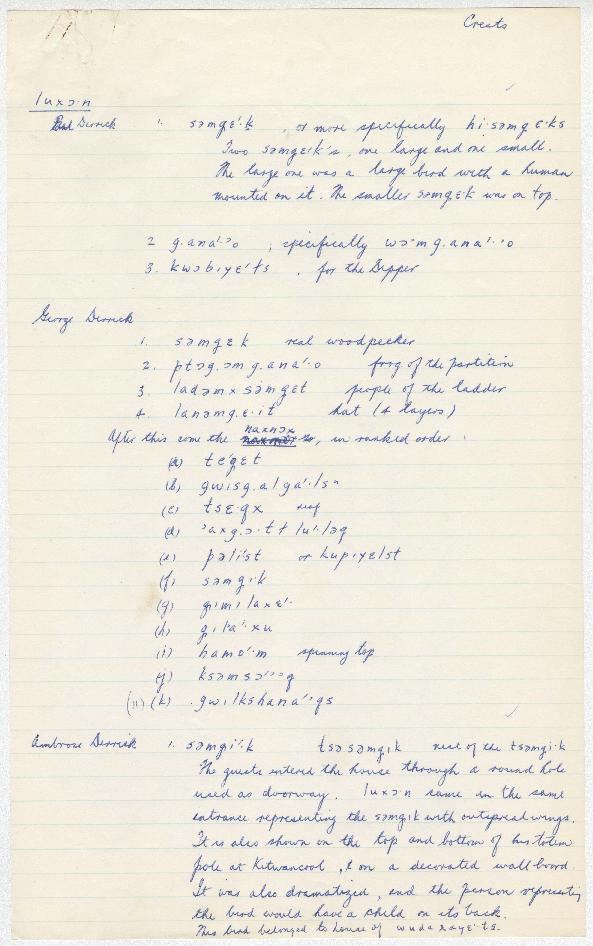 Crests
luxɔ·n
Derrick 1. səmgɛ'·k , or more specifically hi·səmgɛ·ks
Two səmgɛ·k's, one large and one small.
The large one was a large bird with a human
mounted on it. The smaller səmgɛk was on top.
2 g.ana'·'o ; specifically wɔ'mg.ana'·'o
3. kwɔbɪyɛ'ts , for the Dipper
George Derrick
1. səmgɛk real woodpecker
2. ptɔg.əmg.ana'·o frog of the partition
3. ladəmxsəmget people of the ladder
4. lanəmg.ɛ·it hat (4 layers)
After this come the naxnɔx , in ranked order:
(a) te'gɛt
(b) gwɪsg.alga'·ls
(c) tsɛ·qx
(d) 'axg.ɔ·tt lu'·ləq
(e) pəli'st or kupɪyɛlst
(f) səmgɪ·k
(g) gɪmɪlaxɛ'·
(h) gɪta'·xu
(i) hamo'·m spinning top
(j) ksəmsɔ'''ɔq
(11) (k) .gwɪlkshana''qs
Ambrose Derrick 1. səmgi'·k tsəsəmgɪk nest of the tsəmgi·k
The guests entered the house through a round hole
used as doorway. luxɔ·n came in the same
entrance representing the səmgɪk with outspread wings.
It is also shown on the top and bottom of his totem
pole at Kitwancool, & on a decorated wall board.
It was also dramatized, and the person representing
the bird would have a child on its back.
This bird belonged to house of wudaxayɛ·ts.